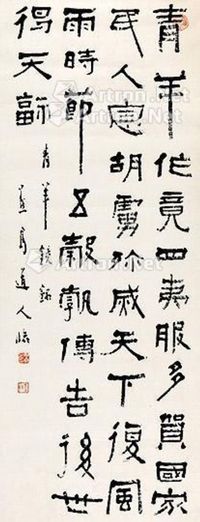 青羊作竟四夷服多賀國家
民人息胡虜殄滅天下復風
雨時節五穀孰傳告後世
得天
青羊鏡銘
道人臨